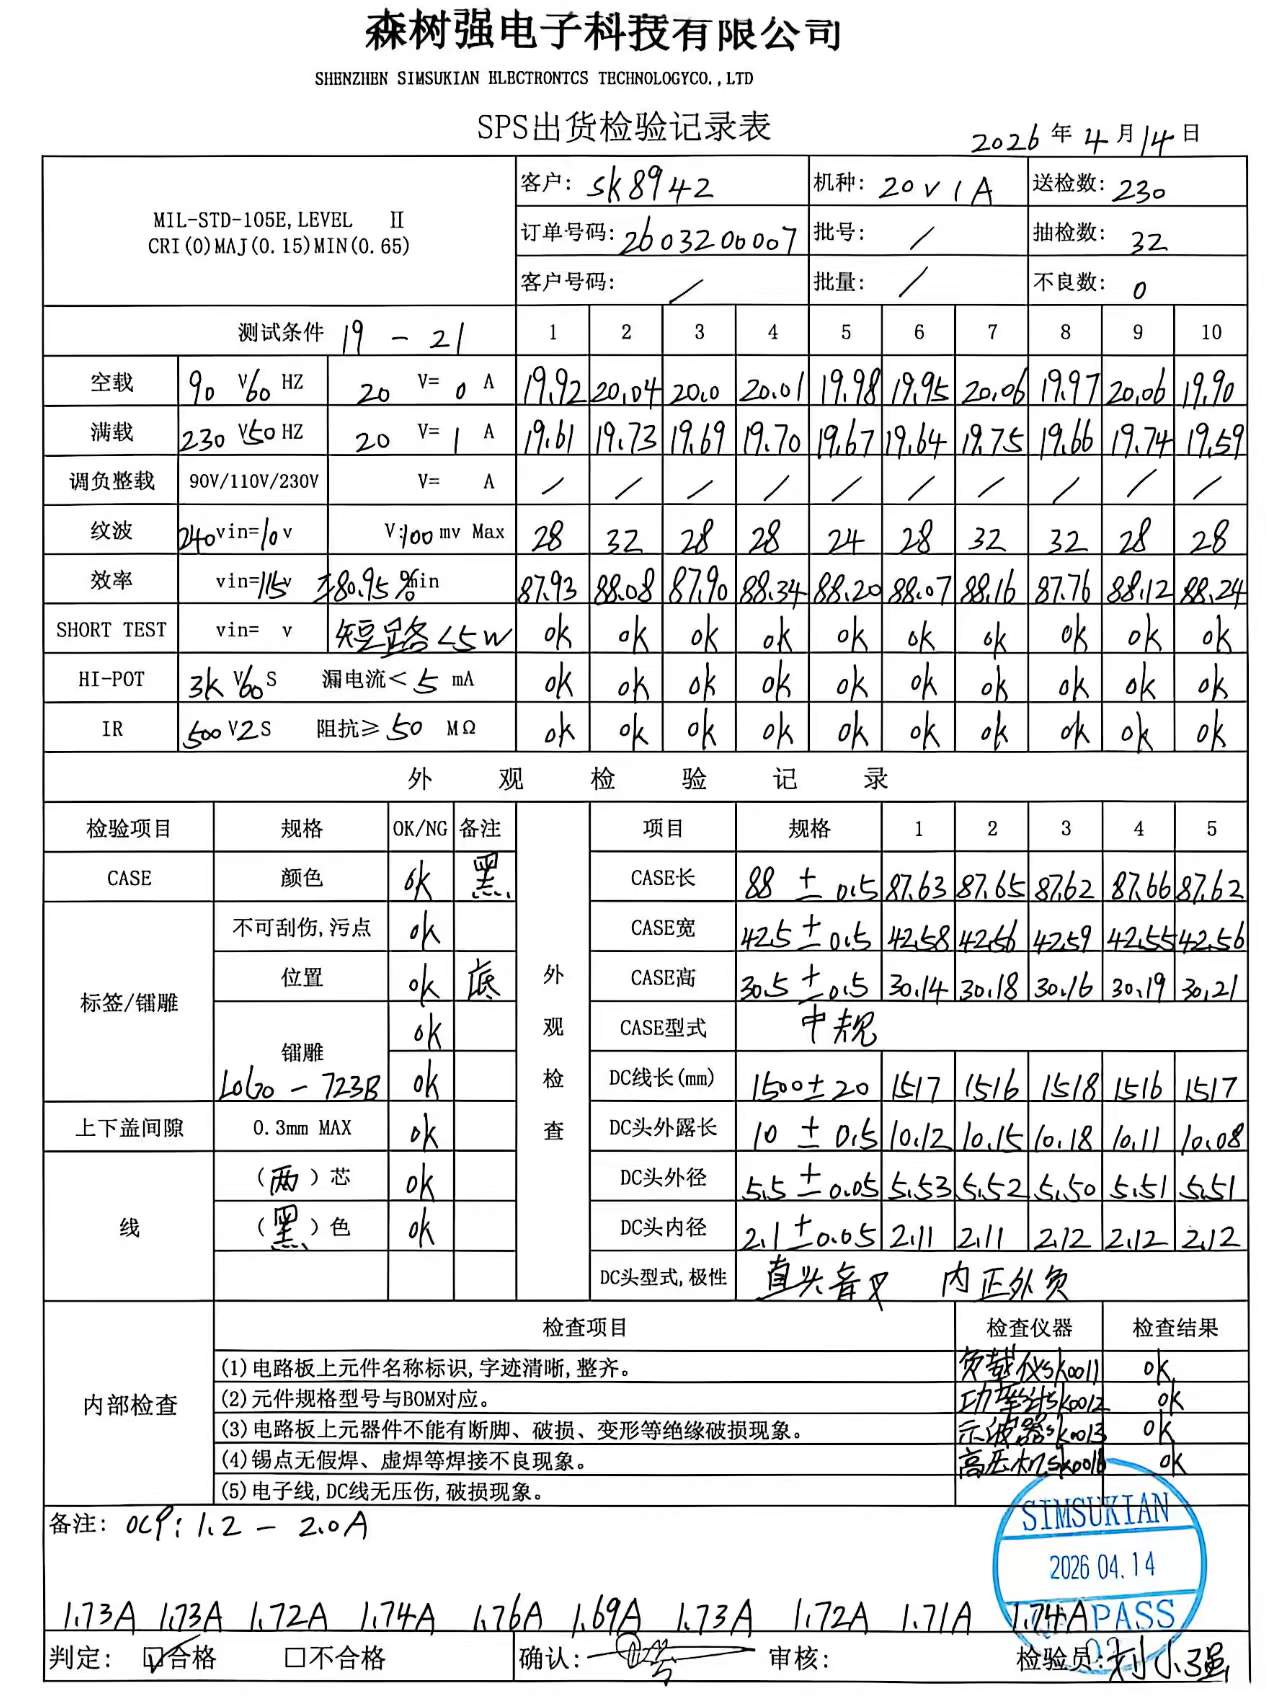 森树强电子科技有限公司
SHENZHEN SIMSUKIAN ELECTRONTCS TECHNOLOGYCO.,LTD
SPS出货检验记录表
2026 年 4 月 14 日
MIL-STD-105E, LEVEL Ⅱ
CRI(0)MAJ(0.15)MIN(0.65)
客户: SK8942 机种: 20V1A 送检数: 230
订单号码: 2603200007 批号: / 抽检数: 32
客户号码: / 批量: / 不良数: 0
测试条件 19 - 21 1 2 3 4 5 6 7 8 9 10
空载 90 V60 HZ 20 V= 0 A 19.92 20.04 20.0 20.01 19.98 19.95 20.06 19.97 20.06 19.90
满载 230 V50 HZ 20 V= 1 A 19.61 19.73 19.69 19.70 19.67 19.64 19.75 19.66 19.74 19.59
调负整载 90V/110V/230V V= A / / / / / / / / / /
纹波 240vin=10v V:100 mv Max 28 32 28 28 24 28 32 32 28 28
效率 vin=115v ≥80.95%min 87.93 88.08 87.90 88.34 88.20 88.07 88.16 87.76 88.12 88.24
SHORT TEST vin= v 短路<5W ok ok ok ok ok ok ok ok ok ok
HI-POT 3K V60S 漏电流< 5 mA ok ok ok ok ok ok ok ok ok ok
IR 500 V2S 阻抗≥ 50 MΩ ok ok ok ok ok ok ok ok ok ok
外观检验记录
检验项目 规格 OK/NG 备注 项目 规格 1 2 3 4 5
CASE 颜色 ok 黑 CASE长 88 ± 0.5 87.63 87.65 87.62 87.66 87.62
不可刮伤,污点 ok CASE宽 42.5 ± 0.5 42.58 42.56 42.59 42.55 42.56
标签/镭雕 位置 ok 底 外观检查 CASE高 30.5 ± 0.5 30.14 30.18 30.16 30.19 30.21
ok CASE型式 中规
镭雕 LOGO - 723B ok DC线长(mm) 1500±20 1517 1516 1518 1516 1517
上下盖间隙 0.3mm MAX ok DC头外露长 10 ± 0.5 10.12 10.15 10.18 10.11 10.08
(两)芯 ok DC头外径 5.5 ± 0.05 5.53 5.52 5.50 5.51 5.51
线 (黑)色 ok DC头内径 2.1 ± 0.05 2.11 2.11 2.12 2.12 2.12
DC头型式,极性 直头音叉 内正外负
内部检查 检查项目 检查仪器 检查结果
(1)电路板上元件名称标识,字迹清晰,整齐。 负载仪SK0011 ok
(2)元件规格型号与BOM对应。 功率计SK0012 ok
(3)电路板上元器件不能有断脚、破损、变形等绝缘破损现象。 示波器SK0013 ok
(4)锡点无假焊、虚焊等焊接不良现象。 高压机SK0018 ok
(5)电子线,DC线无压伤,破损现象。
备注: OCP: 1.2 - 2.0A
SIMSUKIAN
2026 04.14
PASS
1.73A 1.73A 1.72A 1.74A 1.76A 1.69A 1.73A 1.72A 1.71A 1.74A
判定: ☑合格 □不合格 确认: 审核: 检验员: 刘小强